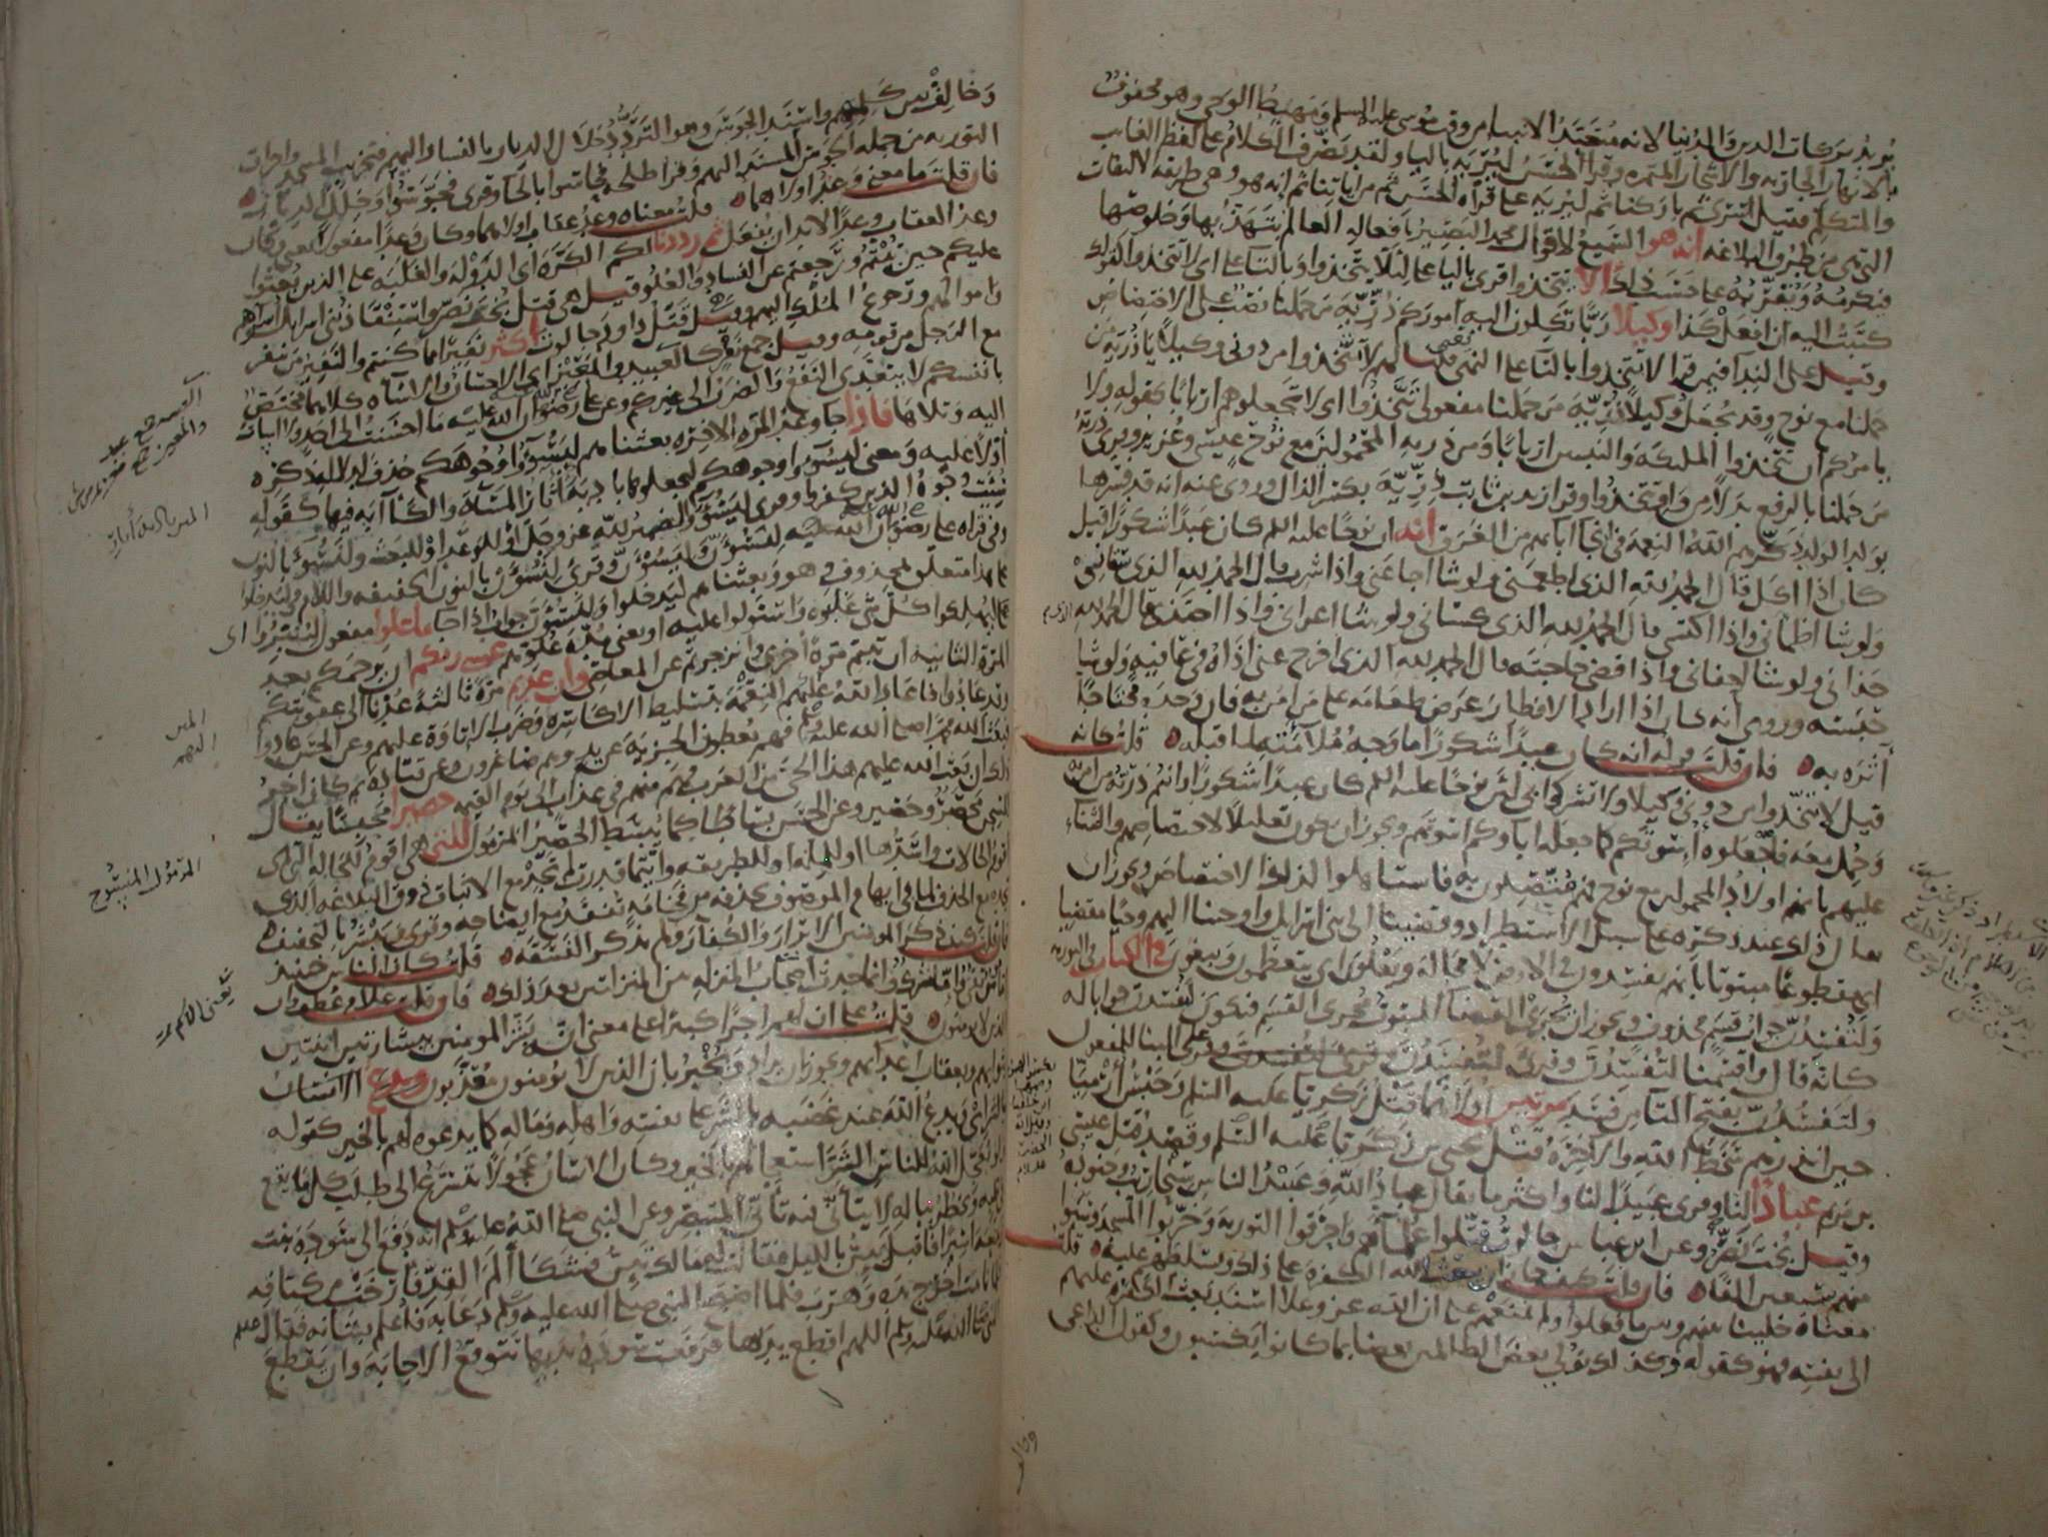 يريد بركات الدين والدنيا لانه متعبد الانبيا من وقت موسى عليه السلم ومهبط الوحي وهو محفوف
بالانهار الجارية والاشجار المثمرة وقرا الحسن ليريه باليا ولقد تصرف الكلام على لفظ الغايب
والمتكلم فقيل اسرى ثم باركنا ثم ليريه على قراة الحسن ثم من اياتنا ثم انه هو وهي طريقة الالتفات
التي هي من طرق البلاغة انه هو السميع لاقوال محمد البصير بافعاله العالم بتهذبها وخلوصها
فيكرمه ويقربه على حسب ذلك الا تتخذوا قرى باليا على لئلا يتخذوا وبالتا على اي لا تتخذوا كقولك
كتبت اليه ان افعل كذا وكيلا ربا تكلون اليه اموركم ذرية من حملنا نصب على الاختصاص
وقيل على الندا فيمن قرا لا تتخذوا بالتا على النهي يعني قلنا لهم لا تتخذوا من دوني وكيلا يا ذرية من
حملنا مع نوح وقد يجعل وكيلا ذرية من حملنا مفعولي تتخذوا اي لا تجعلوهم اربابا كقوله ولا
يامركم ان تتخذوا الملئكة والنبيين اربابا ومن ذرية المحمولين مع نوح عيسى وعزير وقرى ذرية
من حملنا بالرفع بدلا من واو تتخذوا وقرا زيد بن ثابت ذرية بكسر الذال وروي عنه انه قد فسرها
بولد الولد ذكرهم الله النعمة في انجا ابايهم من الغرق انه ان نوحا عليه السلم كان عبدا شكورا قيل
كان اذا اكل قال الحمد لله الذي اطعمني ولو شا اجاعني واذا شرب قال الحمد لله الذي سقاني
ولو شا اظماني واذا اكتسى قال الحمد لله الذي كساني ولو شا اعراني واذا احتذى قال الحمد لله الذي
حذاني ولو شا احفاني واذا قضى حاجته قال الحمد لله الذي اخرج عني اذاه في عافية ولو شا
حبسه وروي انه كان اذا اراد الافطار عرض طعامه على من امن به فان وجده محتاجا
اثره به فان قلت قوله انه كان عبدا شكورا ما وجه ملاءمته لما قبله قلت كانه
قيل لا تتخذوا من دوني وكيلا ولا تشركوا بي لان نوحا عليه السلم كان عبدا شكورا وانتم ذرية من امن به
وحمل معه فاجعلوه اسوتكم كما جعله اباوكم اسوتهم ويجوز ان يكون تعليلا لاختصاصهم والثناء
عليهم بانهم اولاد المحمولين مع نوح فهم متصلون به فاستاهلوا لذلك الاختصاص ويجوز ان
يقال ذلك عند ذكره على سبيل الاستطراد وقضينا الى بني اسرايل واوحينا اليهم وحيا مقضيا
اي مقطوعا مبتوتا بانهم يفسدون في الارض لا محالة ويعلون اي يتعظمون ويبغون في الكتاب في التورية
ولتفسدن جواب قسم محذوف ويجوز ان يجري القضا المبتوت مجرى القسم فيكون لتفسدن جوابا له
كانه قال واقسمنا لتفسدن وقرى لتفسدن على البنا للمفعول
ولتفسدن بفتح التا من فسد مرتين اولاهما قتل زكريا عليه السلم وحبس ارميا
حين انذرهم سخط الله والاخرة قتل يحيى بن زكريا عليه السلم وقصد قتل عيسى
بن مريم عبادا لنا وقرى عبيدا لنا واكثر ما يقال عباد الله وعبيد الناس سنجاريب وجنوده
وقيل بخت نصر وعن ابن عباس جالوت قتلوا علماهم واحرقوا التورية وخربوا المسجد وسبوا
منهم سبعين الفا فان قلت كيف جاز ان يبعث الله الكفرة على ذلك ويسلطهم عليه قلت
معناه خلينا بينهم وبين ما فعلوا ولم نمنعهم على ان الله عز وعلا اسند بعث الكفرة عليهم
الى نفسه فهو كقوله وكذلك نولي بعض الظالمين بعضا بما كانوا يكسبون وكقول الداعي
وخالف بين كلمهم واسند الجوس وهو التردد خلال الديار بالفساد اليهم فتخريب المسجد واحراق
التورية من جملة الجوس المسند اليهم وقرا طلحة فحاسوا بالحا وقرى فجوسوا وخلل الديار
فان قلت ما معنى وعد اولاهما قلت معناه وعد عقاب اولاهما وكان وعدا مفعولا يعني وكان
وعد العقاب وعدا لابد ان يفعل ثم رددنا لكم الكرة اي الدولة والغلبة على الذين بعثوا
عليكم حين تبتم ورجعتم عن الفساد والعلو قيل هي قتل بخت نصر واستنقاذ بني اسرايل اسراهم
واموالهم ورجوع الملك اليهم وقيل قتل داود جالوت اكثر نفيرا مما كنتم والنفير من ينفر
مع الرجل من قومه وقيل جمع نفر كالعبيد والمعيز اي الاحسان والاساة كلاهما مختص
بانفسكم لا يتعدى النفع والضرر الى غيركم وعن علي رضوان الله عليه ما احسنت الى احد ولا اسات
اليه وتلاها فاذا جا وعد المرة الاخرة بعثناهم ليسوؤا وجوهكم حذف لدلالة ذكره
اولا عليه ومعنى ليسوؤا وجوهكم ليجعلوها بادية اثار المساة والكابة فيها كقوله
سيئت وجوه الذين كفروا وقرى ليسوء والضمير لله عز وجل او للوعد او للبعث ولنسوء بالنون
وفي قراة علي رضوان الله عليه لنسوءن وليسوءن وقرى لنسوءن بالنون الخفيفة واللام في ليدخلوا
على هذا متعلق بمحذوف هو وبعثناهم ليدخلوا ولنسوءن جواب اذا جا ما علوا مفعول ليتبروا اي
ليهلكوا كل شي غلبوه واستولوا عليه او بمعنى مدة علوهم عسى ربكم ان يرحمكم بعد
المرة الثانية ان تبتم توبة اخرى وانزجرتم عن المعاصي وان عدتم مرة ثالثة عدنا الى عقوبتكم
وقد عادوا فاعاد الله عليهم النقمة بتسليط الاكاسرة وضرب الاتاوة عليهم وعن الحسن عادوا
فبعث الله محمدا صلى الله عليه وسلم فهم يعطون الجزية عن يد وهم صاغرون وعن قتادة ثم كان اخر
ذلك ان بعث الله عليهم هذا الحي من العرب فهم منهم في عذاب الى يوم القيمة حصيرا محبسا يقال
للسجن محصر وحصير وعن الحسن بساطا كما يبسط الحصير المرمول للتي هي اقوم للحالة التي هي
اقوم الحالات واسدها او للملة او للطريقة واينما قدرت لم تجد مع الاثبات ذوق البلاغة الذي
تجده مع الحذف لما في ابهام الموصوف بحذفه من فخامة تفقد مع ايضاحه وقرى ويبشر بالتخفيف
فان قلت كيف ذكر المومنين الابرار والكفار ولم يذكر الفسقة قلت كان الناس حينئذ
اما مومن تقي واما مشرك وانما حدث اصحاب المنزلة بين المنزلتين بعد ذلك فان قلت علام عطف وان
الذين لا يومنون قلت على ان لهم اجرا كبيرا على معنى انه بشر المومنين ببشارتين اثنتين
بثوابهم وبعقاب اعدايهم ويجوز ان يراد ويخبر بان الذين لا يومنون معذبون ويدع الانسان
بالشر اي يدعو الله عند غضبه بالشر على نفسه واهله وماله كما يدعوه لهم بالخير كقوله
ولو يعجل الله للناس الشر استعجالهم بالخير وكان الانسان عجولا يتسرع الى طلب كل ما يقع
في قلبه ويخطر بباله لا يتانى فيه تاني المتبصر وعن النبي صلى الله عليه وسلم انه دفع الى سودة بنت
زمعة اسيرا فاقبل يئن بالليل فقالت له ما لك تئن فشكا الم القد فارخت من كتافه
فلما نامت اخرج يده وهرب فلما اصبح النبي صلى الله عليه وسلم دعا به فاعلم بشانه فقال
صلى الله عليه وسلم اللهم اقطع يديها فرفعت سودة يديها تتوقع الاجابة وان يقطع
المرمول المنسوج